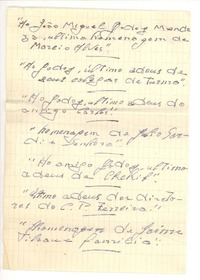 "Ao João Miguel Godoy Mende
za, ultima homenagem de
Marcio Alves"
"Ao Godoy, último adeus de
seus colegas de turma"
"Ao Godoy, último adeus do
amigo Carlos"
"homenagem de João
e Senhora"
"Ao amigo Godoy, último
adeus de
"Ultimo adeus dos direto
res do C.P. Ferreira."
"Homenagem de Jaime
e Família"